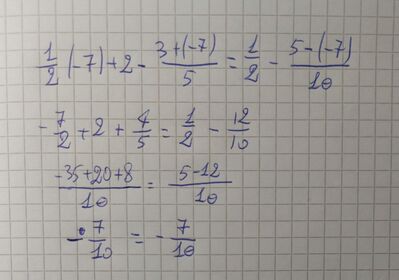 1/2 (-7) + 2 - (3+(-7))/5 = 1/2 - (5-(-7))/10
-7/2 + 2 + 4/5 = 1/2 - 12/10
(-35+20+8)/10 = (5-12)/10
-7/10 = -7/10